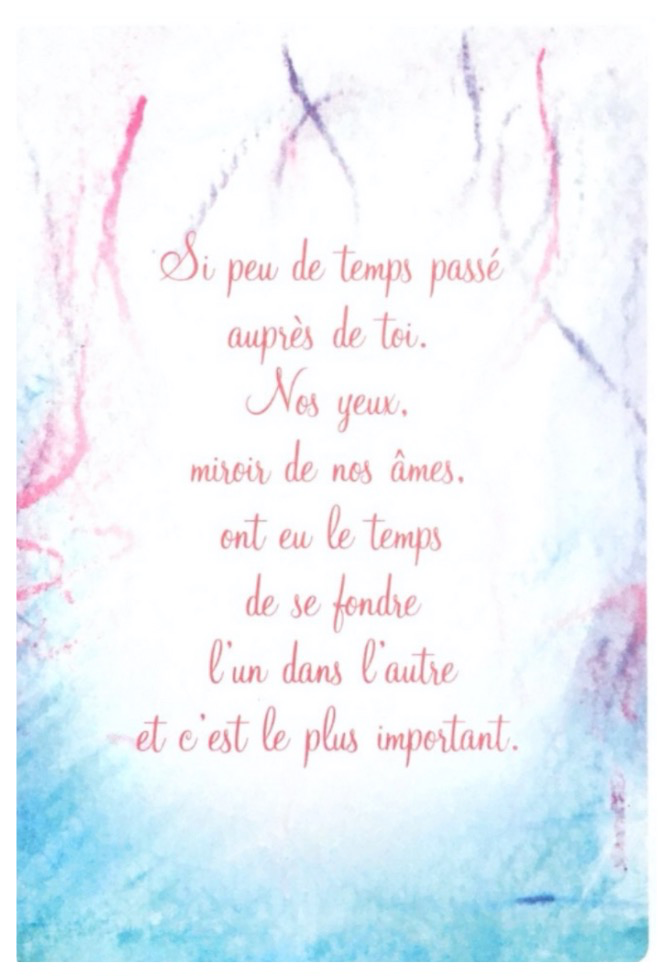 Si peu de temps passé
auprès de toi.
Nos yeux,
miroir de nos âmes,
ont eu le temps
de se fondre
l'un dans l'autre
et c'est le plus important.